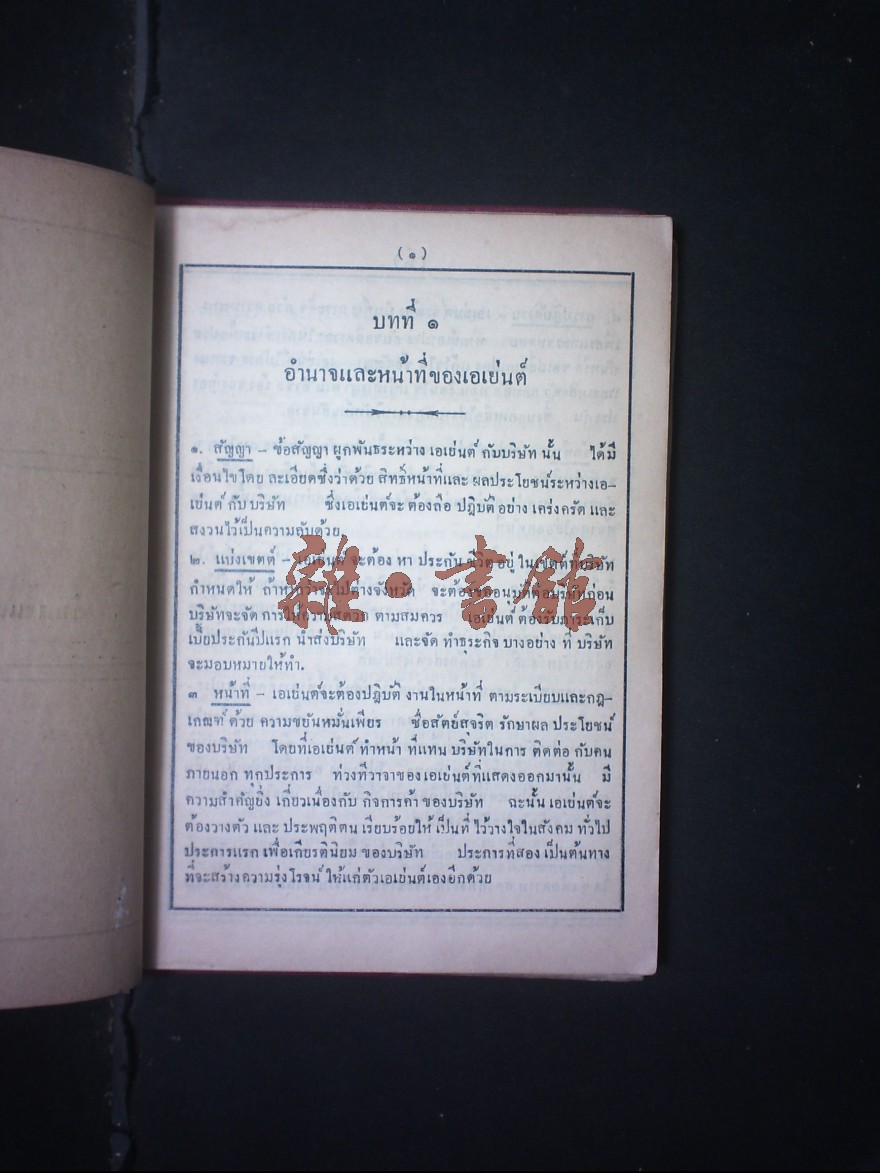 ( ๑ )
บทที่ ๑
อำนาจและหน้าที่ของเอเย่นต์
๑. สัญญา – ข้อสัญญา ผูกพันธระหว่าง เอเย่นต์ กับบริษัท นั้น ได้มี
เงื่อนไขโดย ละเอียดซึ่งว่าด้วย สิทธิ์หน้าที่และ ผลประโยชน์ระหว่างเอ–
เย่นต์ กับ บริษัท ซึ่งเอเย่นต์จะ ต้องถือ ปฎิบัติ อย่าง เคร่งครัด และ
สงวนไว้เป็นความลับด้วย.
๒. แบ่งเขตต์ – เอเย่นต์ จะต้อง หา ประกัน ชีวิต อยู่ ในเขตต์ที่บริษัท
กำหนดให้ ถ้าหากว่าจะไปต่างจังหวัด จะต้อง ก่อน
บริษัทจะจัด การให้ความสดวก ตามสมควร เอเย่นต์ ต้องรับภาระเก็บ
เบี้ยประกันปีแรก นำส่งบริษัท และจัด ทำธุระกิจ บางอย่าง ที่ บริษัท
จะมอบหมายให้ทำ.
๓ หน้าที่ – เอเย่นต์จะต้องปฎิบัติ งานในหน้าที่ ตามระเบียบและกฎ–
เกณฑ์ ด้วย ความขยันหมั่นเพียร ซื่อสัตย์สุจริต รักษาผล ประโยชน์
ของบริษัท โดยที่เอเย่นต์ ทำหน้า ที่แทน บริษัทในการ ติดต่อ กับคน
ภายนอก ทุกประการ ท่วงทีวาจาของเอเย่นต์ที่แสดงออกมานั้น มี
ความสำคัญยิ่ง เกี่ยวเนื่องกับ กิจการค้า ของบริษัท ฉะนั้น เอเย่นต์จะ
ต้องวางตัว และ ประพฤติตน เรียบร้อยให้ เป็นที่ ไว้วางใจในสังคม ทั่วไป
ประการแรก เพื่อเกียรตินิยม ของบริษัท ประการที่สอง เป็นต้นทาง
ที่จะสร้าง ความรุ่งโรจน์ ให้แก่ตัวเอเย่นต์เองอีกด้วย
雜·書館